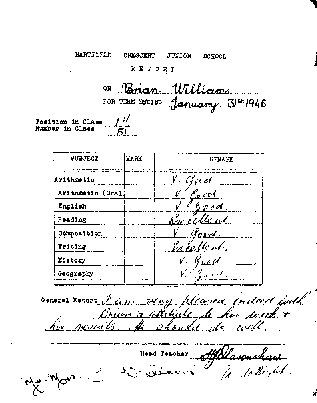 HARTFIELD CRESCENT JUNIOR SCHOOL
REPORT
ON Brian Williams
FOR TERM ENDING January 31st 1946
Position in Class 1st
Number in Class 51
SUBJECT MARK REMARK
Arithmetic V. Good
Arithmetic (Oral) V. Good
English V. Good
Reading Excellent
Composition V. Good
Writing Excellent
History V. Good
Geography V. Good
General Report I am very pleased indeed with
Brian's attitude to his work &
his results. He should do well.
Head Teacher